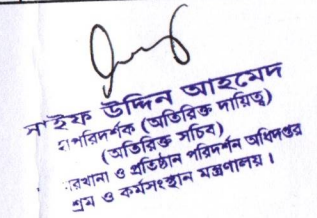 সাইফ উদ্দিন আহমেদ
াপরিদর্শক (অতিরিক্ত দায়িত্ব)
(অতিরিক্ত সচিব)
ারখানা ও প্রতিষ্ঠান পরিদর্শন অধিদপ্তর
শ্রম ও কর্মসংস্থান মন্ত্রণালয়।